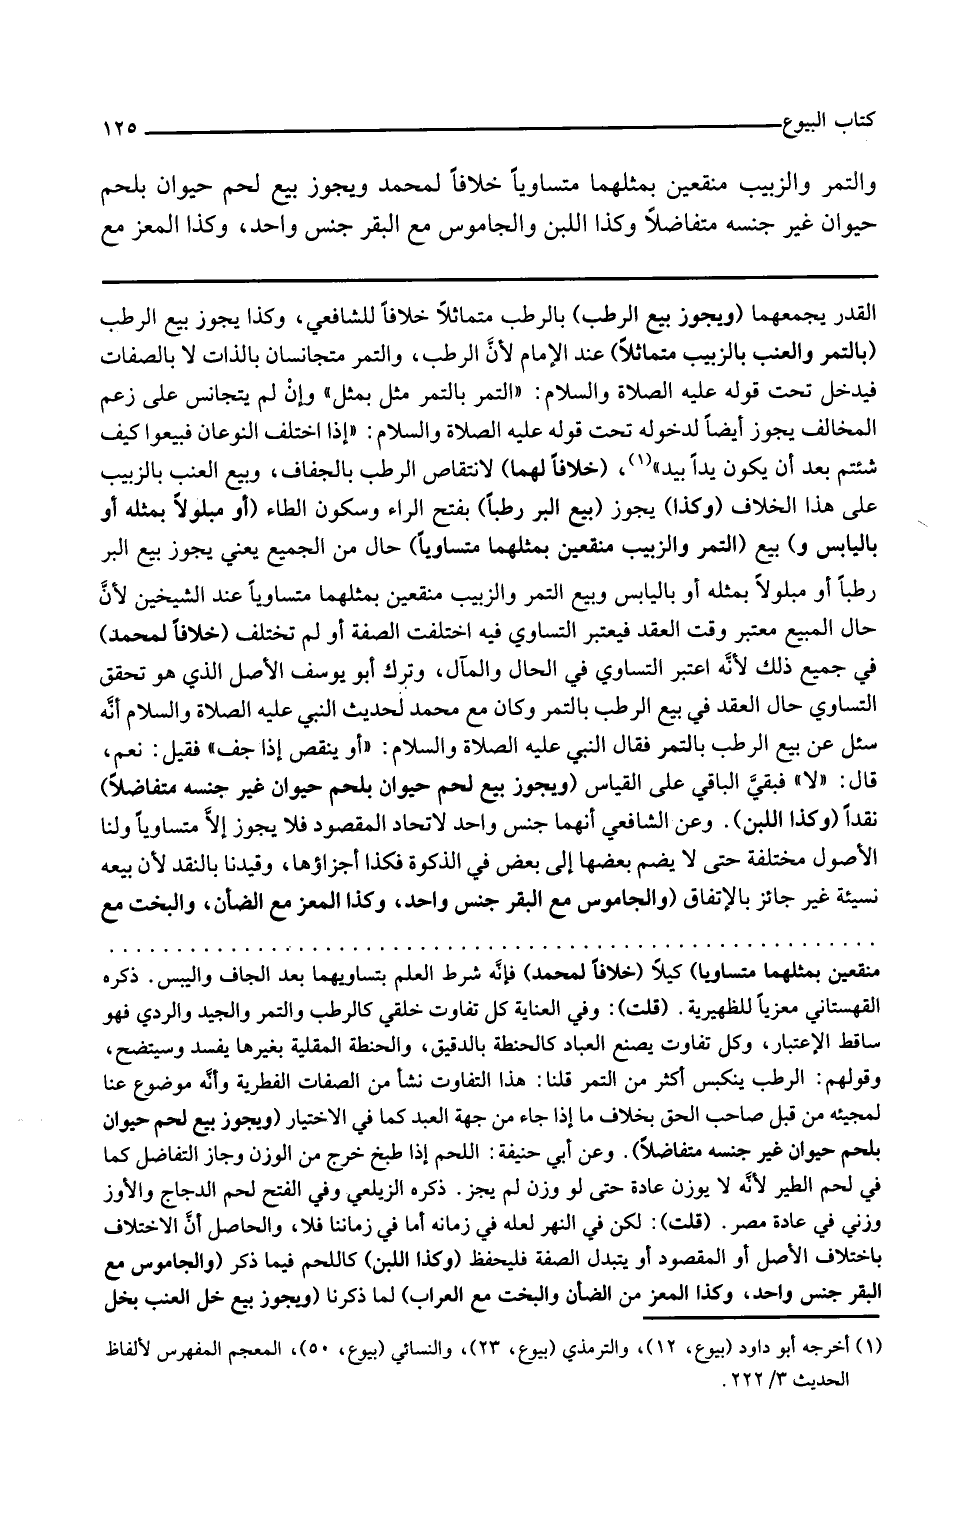 كتاب البيوع ١٢٥
والتمر والزبيب منقعين بمثلهما متساوياً خلافاً لمحمد ويجوز بيع لحم حيوان بلحم
حيوان غير جنسه متفاضلاً وكذا اللبن والجاموس مع البقر جنس واحد، وكذا المعز مع
القدر يجمعهما (ويجوز بيع الرطب) بالرطب متماثلاً خلافاً للشافعي، وكذا يجوز بيع الرطب
(بالتمر والعنب بالزبيب متماثلاً) عند الإمام لأنَّ الرطب، والتمر متجانسان بالذات لا بالصفات
فيدخل تحت قوله عليه الصلاة والسلام: «التمر بالتمر مثل بمثل» وإنْ لم يتجانس على زعم
المخالف يجوز أيضاً لدخوله تحت قوله عليه الصلاة والسلام: «إذا اختلف النوعان فبيعوا كيف
شئتم بعد أن يكون يداً بيد»(١)، (خلافاً لهما) لانتقاص الرطب بالجفاف، وبيع العنب بالزبيب
على هذا الخلاف (وكذا) يجوز (بيع البر رطباً) بفتح الراء وسكون الطاء (أو مبلولاً بمثله أو
باليابس و) بيع (التمر والزبيب منقعين بمثلهما متساوياً) حال من الجميع يعني يجوز بيع البر
رطباً أو مبلولاً بمثله أو باليابس وبيع التمر والزبيب منقعين بمثلهما متساوياً عند الشيخين لأنَّ
حال المبيع معتبر وقت العقد فيعتبر التساوي فيه اختلفت الصفة أو لم تختلف (خلافاً لمحمد)
في جميع ذلك لأنَّه اعتبر التساوي في الحال والمآل، وترك أبو يوسف الأصل الذي هو تحقق
التساوي حال العقد في بيع الرطب بالتمر وكان مع محمد لحديث النبي عليه الصلاة والسلام أنَّه
سئل عن بيع الرطب بالتمر فقال النبي عليه الصلاة والسلام: «أو ينقص إذا جف» فقيل: نعم،
قال: «لا» فبقيَّ الباقي على القياس (ويجوز بيع لحم حيوان بلحم حيوان غير جنسه متفاضلاً)
نقداً (وكذا اللبن). وعن الشافعي أنهما جنس واحد لاتحاد المقصود فلا يجوز إلاَّ متساوياً ولنا
الأصول مختلفة حتى لا يضم بعضها إلى بعض في الذكوة فكذا أجزاؤها، وقيدنا بالنقد لأن بيعه
نسيئة غير جائز بالإتفاق (والجاموس مع البقر جنس واحد، وكذا المعز مع الضأن، والبخت مع
منقعين بمثلهما متساويا) كيلاً (خلافاً لمحمد) فإنَّه شرط العلم بتساويهما بعد الجاف واليبس. ذكره
القهستاني معزياً للظهيرية. (قلت): وفي العناية كل تفاوت خلقي كالرطب والتمر والجيد والردي فهو
ساقط الإعتبار، وكل تفاوت يصنع العباد كالحنطة بالدقيق، والحنطة المقلية بغيرها يفسد وسيتضح،
وقولهم: الرطب ينكبس أكثر من التمر قلنا: هذا التفاوت نشأ من الصفات الفطرية وأنَّه موضوع عنا
لمجيئه من قبل صاحب الحق بخلاف ما إذا جاء من جهة العبد كما في الاختيار (ويجوز بيع لحم حيوان
بلحم حيوان غير جنسه متفاضلاً). وعن أبي حنيفة: اللحم إذا طبخ خرج من الوزن وجاز التفاضل كما
في لحم الطير لأنَّه لا يوزن عادة حتى لو وزن لم يجز. ذكره الزيلعي وفي الفتح لحم الدجاج والأوز
وزني في عادة مصر. (قلت): لكن في النهر لعله في زمانه أما في زماننا فلا، والحاصل أنَّ الاختلاف
باختلاف الأصل أو المقصود أو يتبدل الصفة فليحفظ (وكذا اللبن) كاللحم فيما ذكر (والجاموس مع
البقر جنس واحد، وكذا المعز من الضأن والبخت مع العراب) لما ذكرنا (ويجوز بيع خل العنب بخل
(١) أخرجه أبو داود (بيوع، ١٢)، والترمذي (بيوع، ٢٣)، والنسائي (بيوع، ٥٠)، المعجم المفهرس لألفاظ
الحديث ٣/ ٢٢٢.